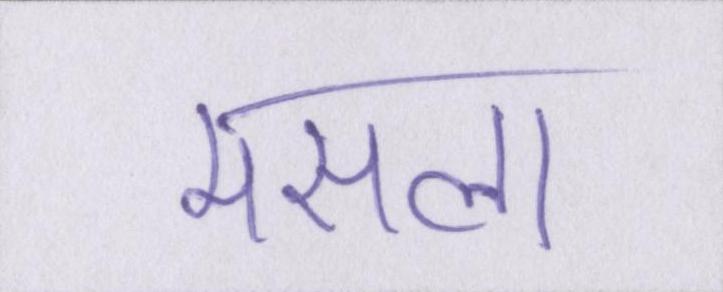 मसला